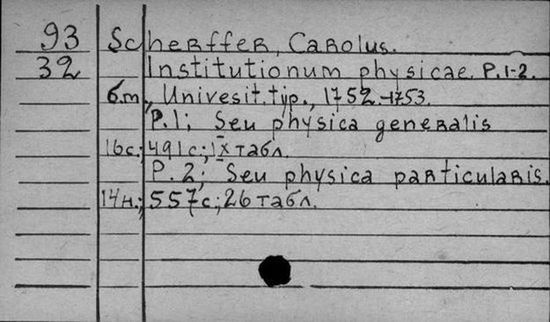 93 Scherffer, Carolus.
32 Institutionum physicae. P.1-2.
б.m., Univesit. typ., 1752-1753.
P.1: Seu physica generalis
16с.; 491с.; IX табл.
P.2: Seu physica particularis.
14н.; 557с.; 26 табл.